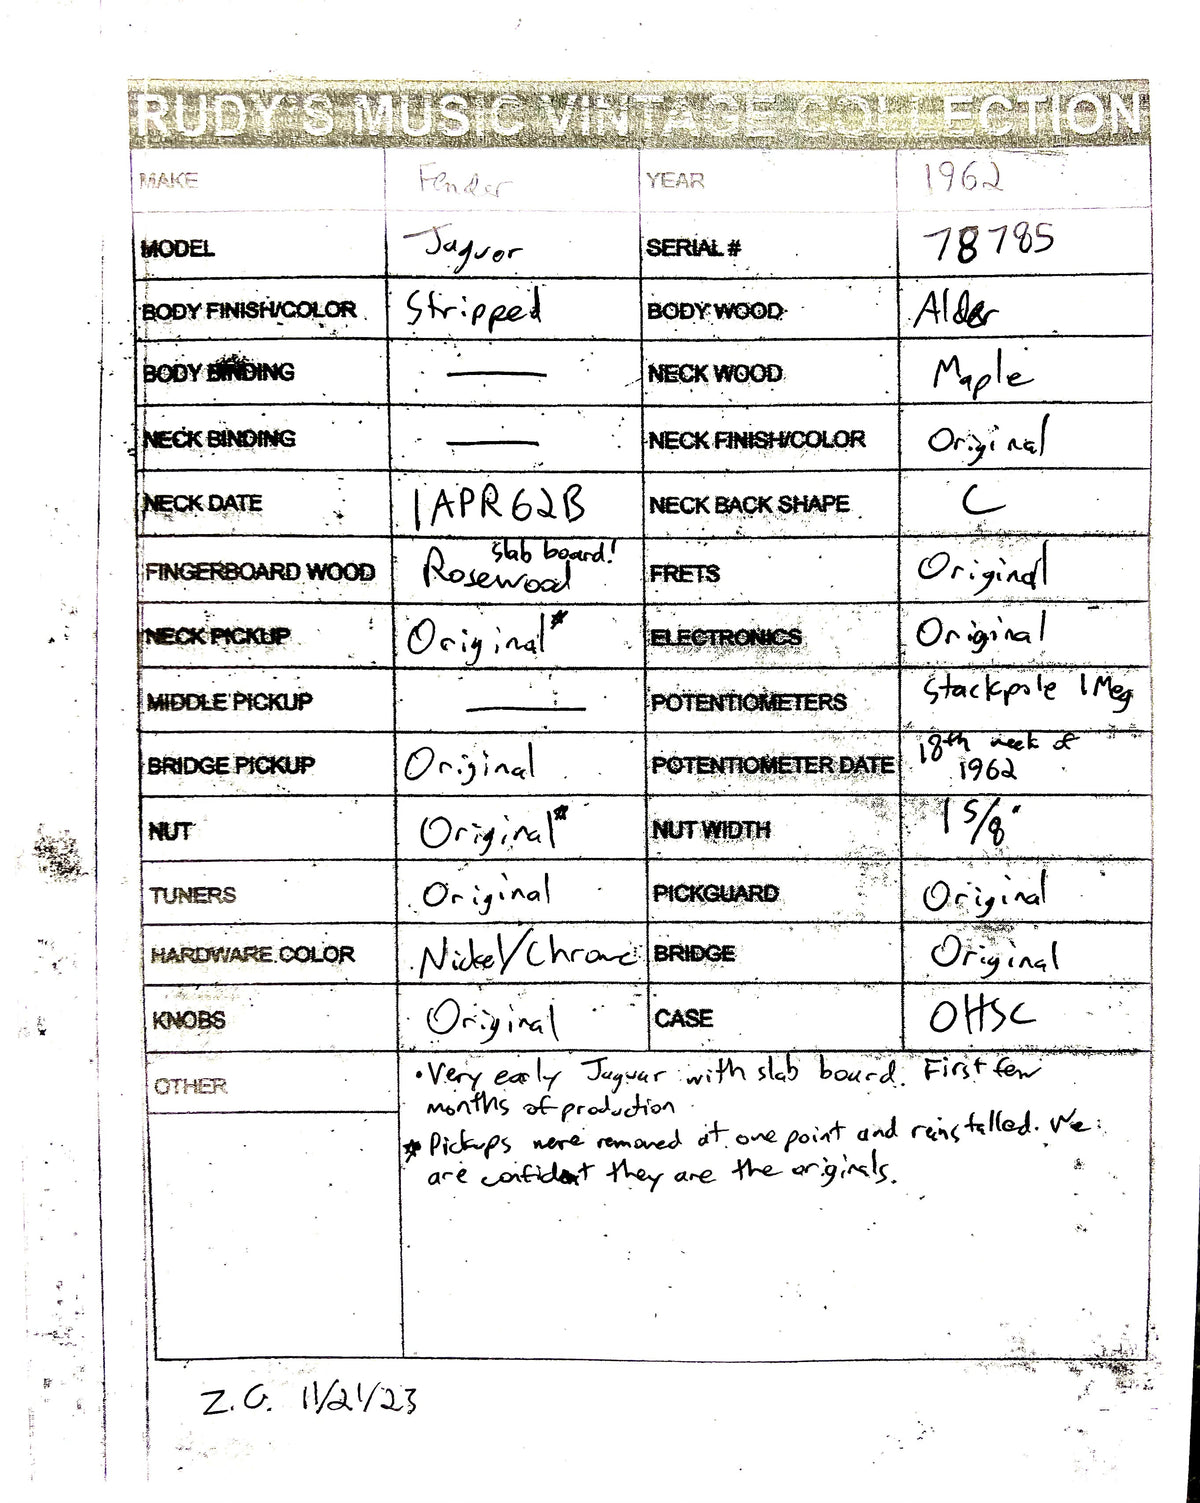 RUDY'S MUSIC VINTAGE COLLECTION
MAKE Fender YEAR 1962
MODEL Jaguar SERIAL # 78785
BODY FINISH/COLOR Stripped BODY WOOD Alder
BODY BINDING — NECK WOOD Maple
NECK BINDING — NECK FINISH/COLOR Original
NECK DATE 1APR62B NECK BACK SHAPE C
FINGERBOARD WOOD Rosewood slab board! FRETS Original
NECK PICKUP Original* ELECTRONICS Original
MIDDLE PICKUP — POTENTIOMETERS Stackpole 1Meg
BRIDGE PICKUP Original POTENTIOMETER DATE 18th week of 1962
NUT Original* NUT WIDTH 1 5/8"
TUNERS Original PICKGUARD Original
HARDWARE COLOR Nickel/Chrome BRIDGE Original
KNOBS Original CASE OHSC
OTHER
• Very early Jaguar with slab board. First few
months of production
* Pickups were removed at one point and reinstalled. We
are confident they are the originals.
Z.G. 11/21/23